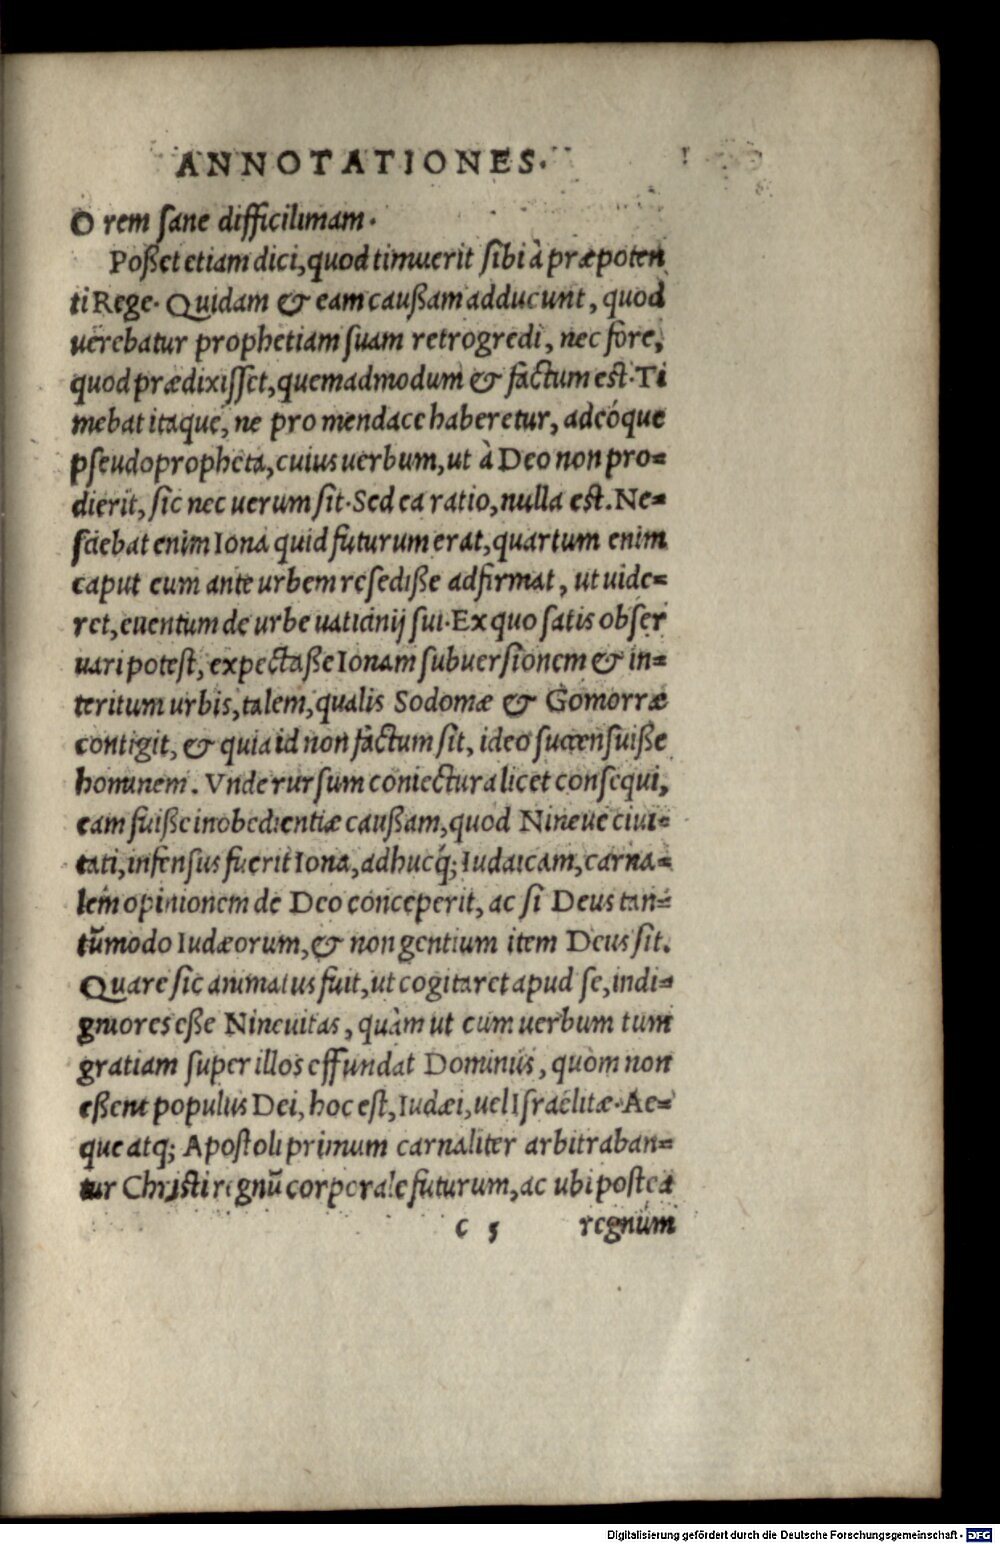 ANNOTATIONES.
O rem sane difficilimam.
Poßet etiam dici, quod timuerit sibi à præpoten
ti Rege. Quidam & eam caußam adducunt, quod
uerebatur prophetiam suam retrogredi, nec fore,
quod prædixisset, quemadmodum & factum est. Ti
mebat itaque, ne pro mendace haberetur, adeóque
pseudopropheta, cuius uerbum, ut à Deo non pro=
dierit, sic nec uerum sit. Sed ea ratio, nulla est. Ne=
sciebat enim Iona quid futurum erat, quartum enim
caput eum ante urbem resediße adfirmat, ut uide=
ret, euentum de urbe uaticinij sui. Ex quo satis obser
uari potest, expectaße Ionam subuersionem & in=
teritum urbis, talem, qualis Sodomæ & Gomorræ
contigit, & quia id non factum sit, ideo succensuiße
hominem. Vnde rursum coniectura licet consequi,
eam fuiße inobedientiæ caußam, quod Nineue ciui=
tati, infensus fuerit Iona, adhucq́; Iudaicam, carna=
lem opinionem de Deo conceperit, ac si Deus tan=
tũmodo Iudæorum, & non gentium item Deus sit.
Quare sic animatus fuit, ut cogitaret apud se, indi=
gniores eße Nineuitas, quàm ut cum uerbum tum
gratiam super illos effundat Dominus, quòm non
eßent populus Dei, hoc est, Iudæi, uel Israëlitæ. Ae=
que atq; Apostoli primum carnaliter arbitraban=
tur Christi regnũ corporale futurum, ac ubi postea
c 5 regnum
Digitalisierung gefördert durch die Deutsche Forschungsgemeinschaft - DFG